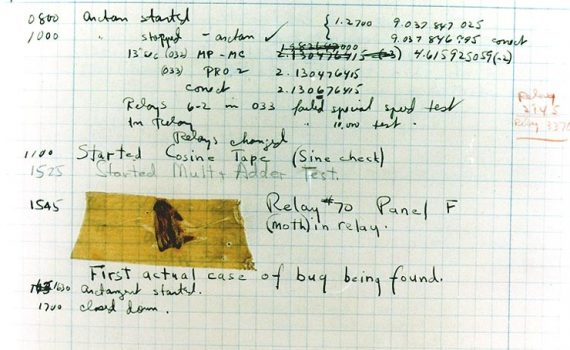 0800 arctan started { 1.2700 9.037 847 025
1000 " stopped - arctan ✓ 9.037 846 995 correct
13"uc (032) MP - MC 2.130476415 (-3) 4.615925059(-2)
(033) PRO 2 2.130476415
correct 2.130676415
Relays 6-2 in 033 failed special speed test
in Relay " 10.000 test .
Relay
2145
Relay 3370
Relays changed
1100 Started Cosine Tape (Sine check)
1525 Started Mult + Adder Test.
1545 Relay #70 Panel F
(moth) in relay.
First actual case of bug being found.
1630 arctangent started.
1700 closed down.